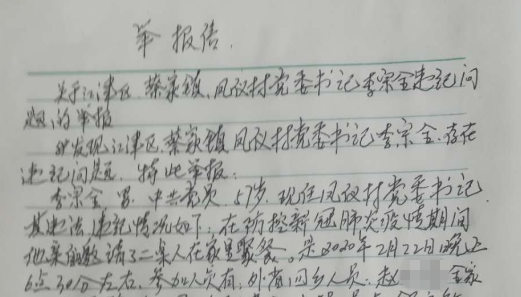 举报信
关于江津区、蔡家镇、凤议村党委书记李宗全违纪问
题的举报
我发现江津区蔡家镇凤议村党委书记李宗全,存在
违纪问题,特此举报:
李宗全,男,中共党员,57岁,现任凤议村党委书记,
其违法违纪情况如下:在防控新冠肺炎疫情期间
请了二桌人在家里聚餐。是2020年2月22日晚上
6点30分左右,参加人员有:外省回乡人员:赵 全家